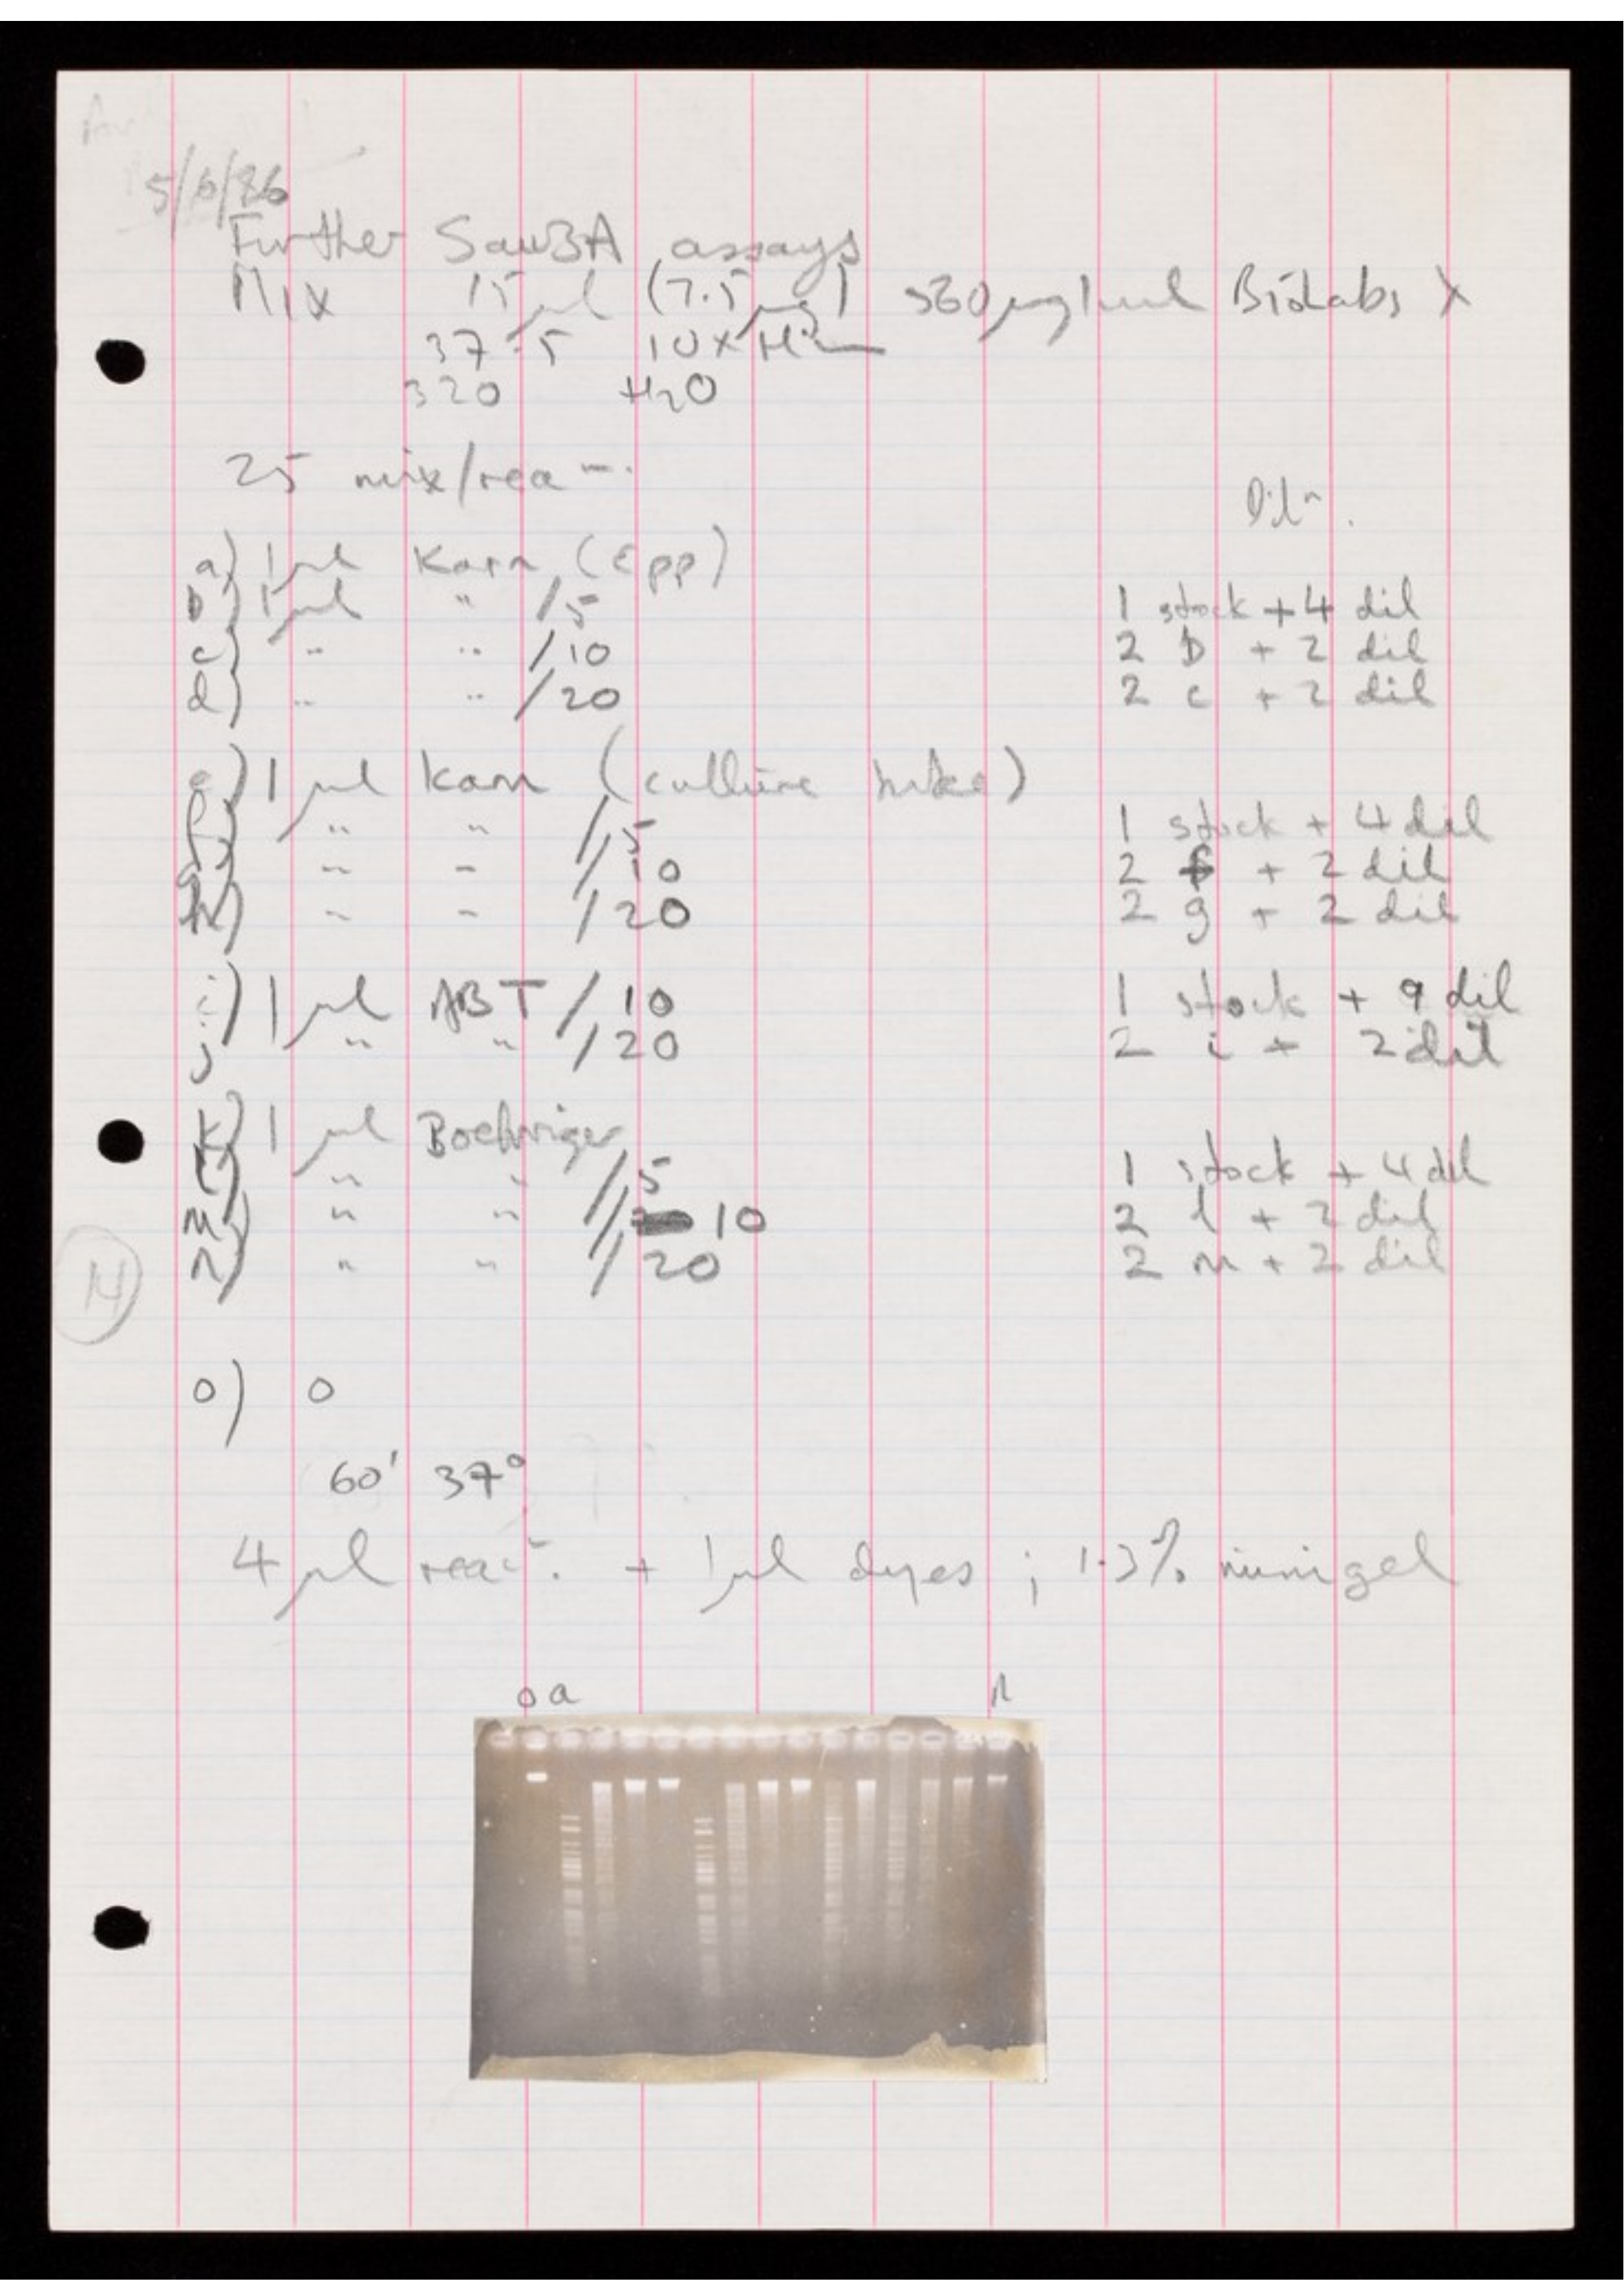 5/6/86
Further Sau3A assays
Mix 15 μl (7.5 μg) 560 μg/ml Biolabs λ
37.5 10x Hin
320 H2O
25 mix/rea n.
Dil n.
a) 1 μl Karn (Epp)
b) 1 μl " /5 1 stock + 4 dil
c) " " /10 2 b + 2 dil
d) " " /20 2 c + 2 dil
e) 1 μl Karn (culture tube)
f) " " /5 1 stock + 4 dil
g) " " /10 2 f + 2 dil
h) " " /20 2 g + 2 dil
i) 1 μl ABT /10 1 stock + 9 dil
j " " /20 2 i + 2 dil
k) 1 μl Boehringer
l) " " /5 1 stock + 4 dil
m) " " / 10 2 l + 2 dil
n) " " /20 2 m + 2 dil
14
o) 0
60' 37°
4 μl reac n. + 1 μl dyes ; 1.3% minigel
o a n